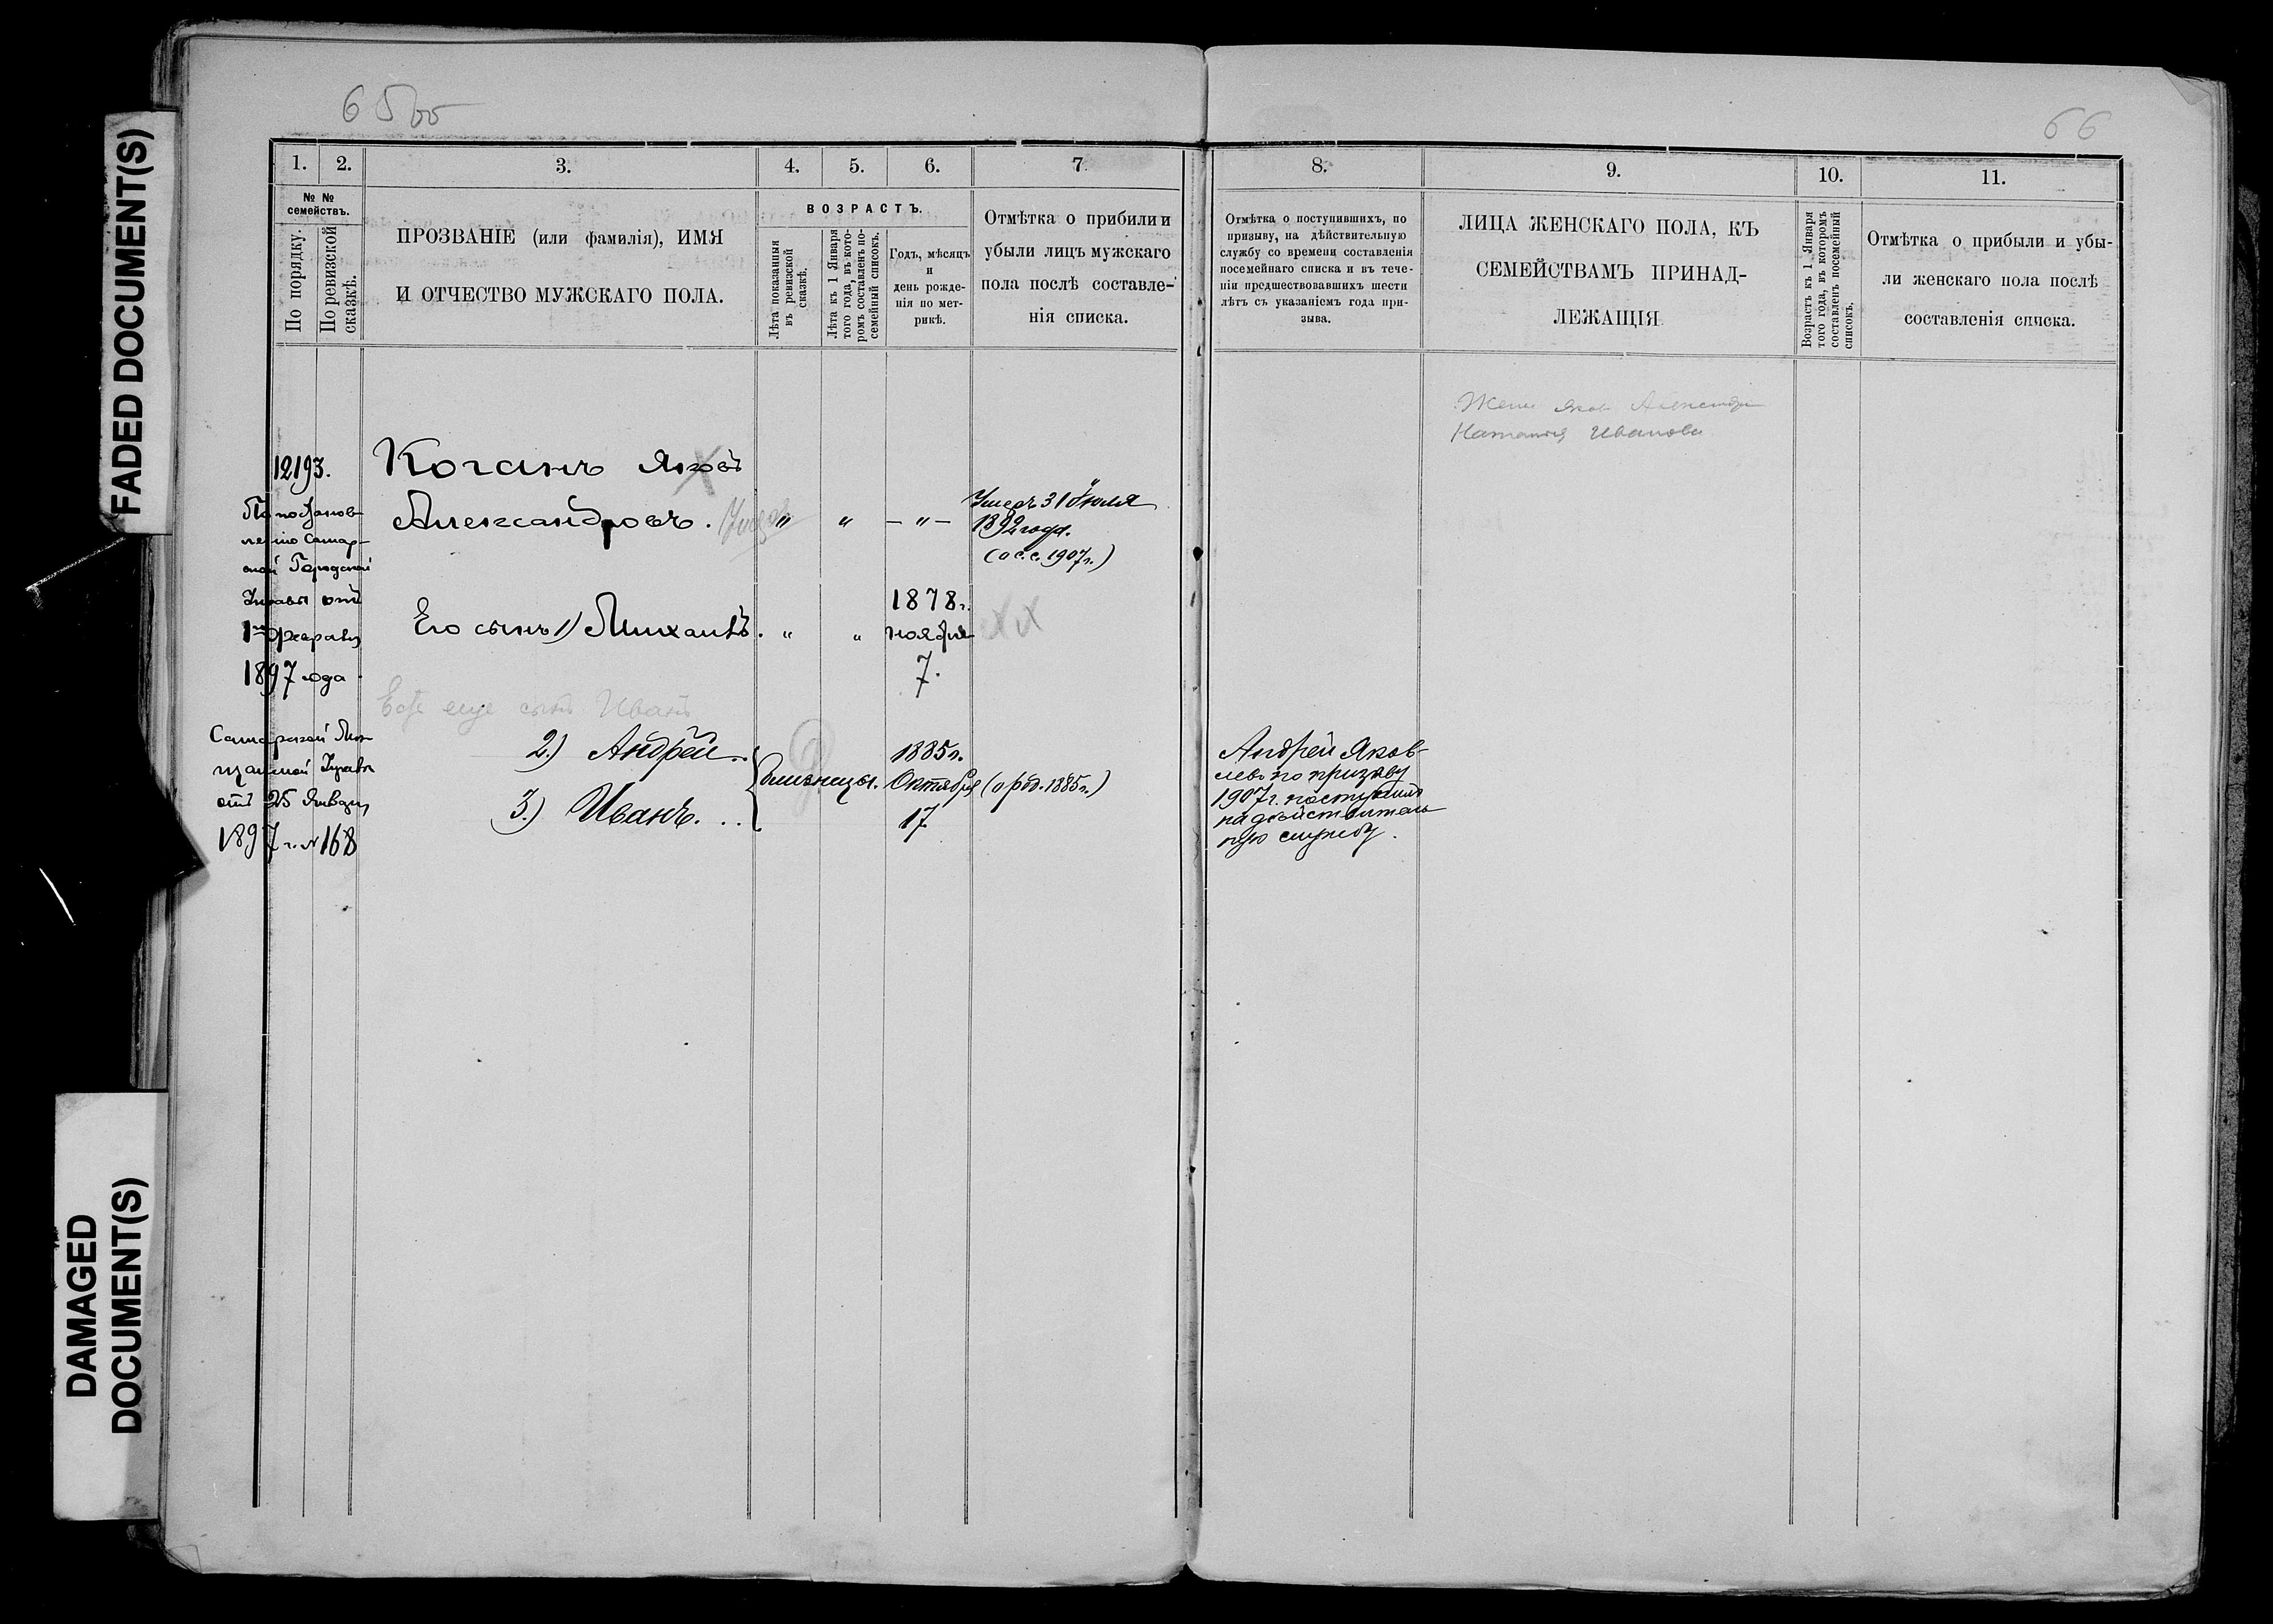 FADED DOCUMENT(S)
DAMAGED
DOCUMENT(S)
65об
66
1. 2. 3. 4. 5. 6. 7.
№ №
семействъ.
По порядку.
По ревизской
сказкѣ.
ПРОЗВАНІЕ (или фамилія), ИМЯ
И ОТЧЕСТВО МУЖСКАГО ПОЛА.
ВОЗРАСТЪ.
Лѣта показанныя
въ ревизской
сказкѣ.
Лѣта къ 1 Января
того года, въ кото-
ромъ составленъ по-
семейный списокъ.
Годъ, мѣсяцъ
и
день рожде-
нія по мет-
рикѣ.
Отмѣтка о прибыли и
убыли лицъ мужскаго
пола послѣ составле-
нія списка.
8. 9. 10. 11.
Отмѣтка о поступившихъ, по
призыву, на дѣйствительную
службу со времени составленія
посемейнаго списка и въ тече-
ніи предшествовавшихъ шести
лѣтъ съ указаніемъ года при-
зыва.
ЛИЦА ЖЕНСКАГО ПОЛА, КЪ
СЕМЕЙСТВАМЪ ПРИНАД-
ЛЕЖАЩІЯ
Возрастъ къ 1 Января
того года, въ которомъ
составленъ посемейный
списокъ.
Отмѣтка о прибыли и убы-
ли женскаго пола послѣ
составленія списка.
12193.
По постанов-
ленію Самар-
ской Городской
Управы отъ
1го февраля
1897 года
Самарской Мѣ-
щанской Управы
отъ 25 Января
1897 г. № 168
Коганъ Яковъ
Александровъ. Умеръ " " — " —
Умеръ 31 Іюля
1892 года.
(о с.с. 1907 г.)
Его сынъ 1) Михаилъ. " "
1878 г.
ноября
7.
Есть еще сынъ Иванъ
2.) Андрей
3.) Иванъ.
близнецы.
1885 г.
Октября (о рд. 1885 г.)
17
Андрей Яков-
левъ по призыву
1907 г. поступилъ
на дѣйствитель
ную службу.
Жена Яков Александр
Наталія Иванова